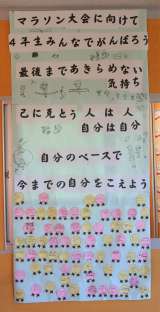 マラソン大会に向けて
4年生みんなでがんばろう
最後まであきらめない
気持ち
己に克とう 人は人
自分は自分
自分のペースで
今までの自分をこえよう